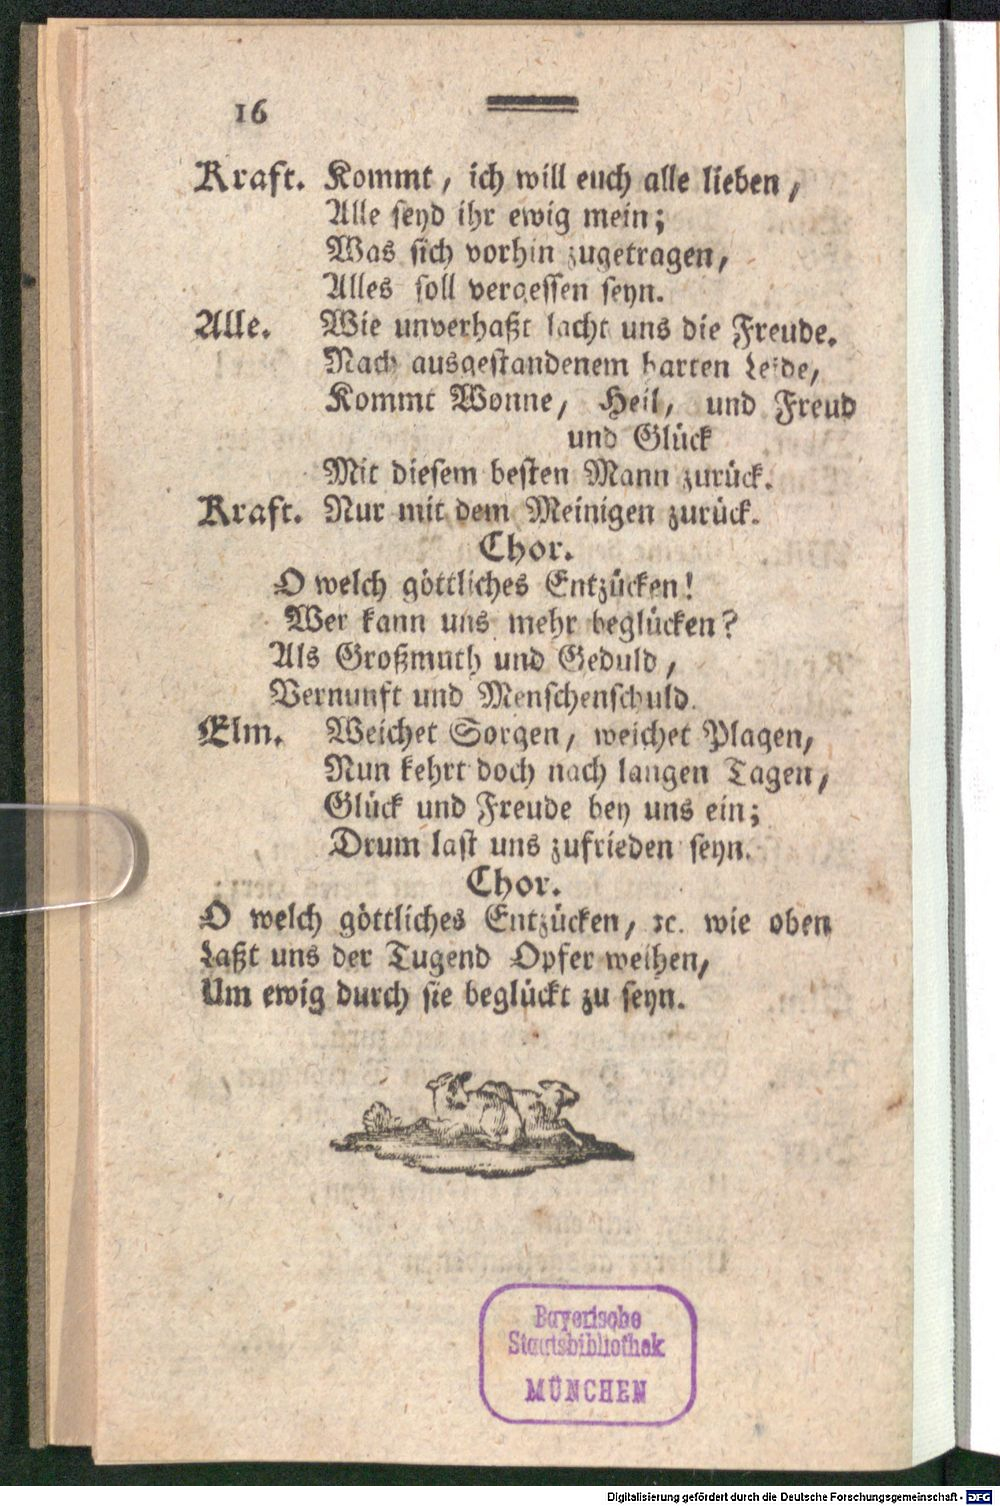 16
Kraft. Kommt, ich will euch alle lieben,
Alle seyd ihr ewig mein;
Was sich vorhin zugetragen,
Alles soll vergessen seyn.
Alle. Wie unverhaßt lacht uns die Freude.
Nach ausgestandenem harten Leide,
Kommt Wonne, Heil, und Freud
und Glück
Mit diesem besten Mann zurück.
Kraft. Nur mit dem Meinigen zurück.
Chor.
O welch göttliches Entzücken!
Wer kann uns mehr beglücken?
Als Großmuth und Geduld,
Vernunft und Menschenschuld.
Elm. Weichet Sorgen, weichet Plagen,
Nun kehrt doch nach langen Tagen,
Glück und Freude bey uns ein;
Drum last uns zufrieden seyn.
Chor.
O welch göttliches Entzücken, ꝛc. wie oben
Laßt uns der Tugend Opfer weihen,
Um ewig durch sie beglückt zu seyn.
Bayerische
Staatsbibliothek
MÜNCHEN
Digitalisierung gefördert durch die Deutsche Forschungsgemeinschaft - DFG